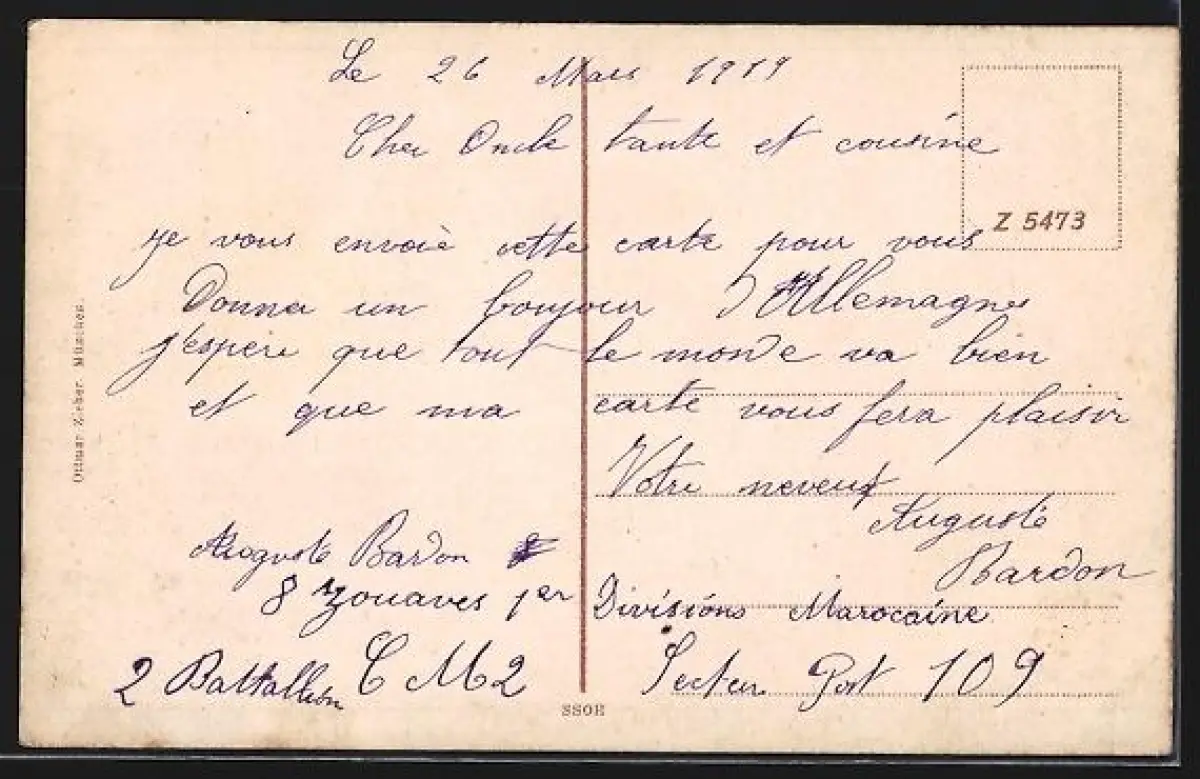 Le 26 Mars 1919
Cher Oncle tante et cousine
Z 5473
je vous envoie cette carte pour vous
Donner un boujour D Allemagne
j'espere que tout le monde va bien
et que ma carte vous fera plaisir
Votre neveux
Auguste
Bardon
Auguste Bardon
8 Zouaves 1er Divisions Marocaine
2 Battallion C M2 Secteur Post 109
Ottmar Zieher, München.